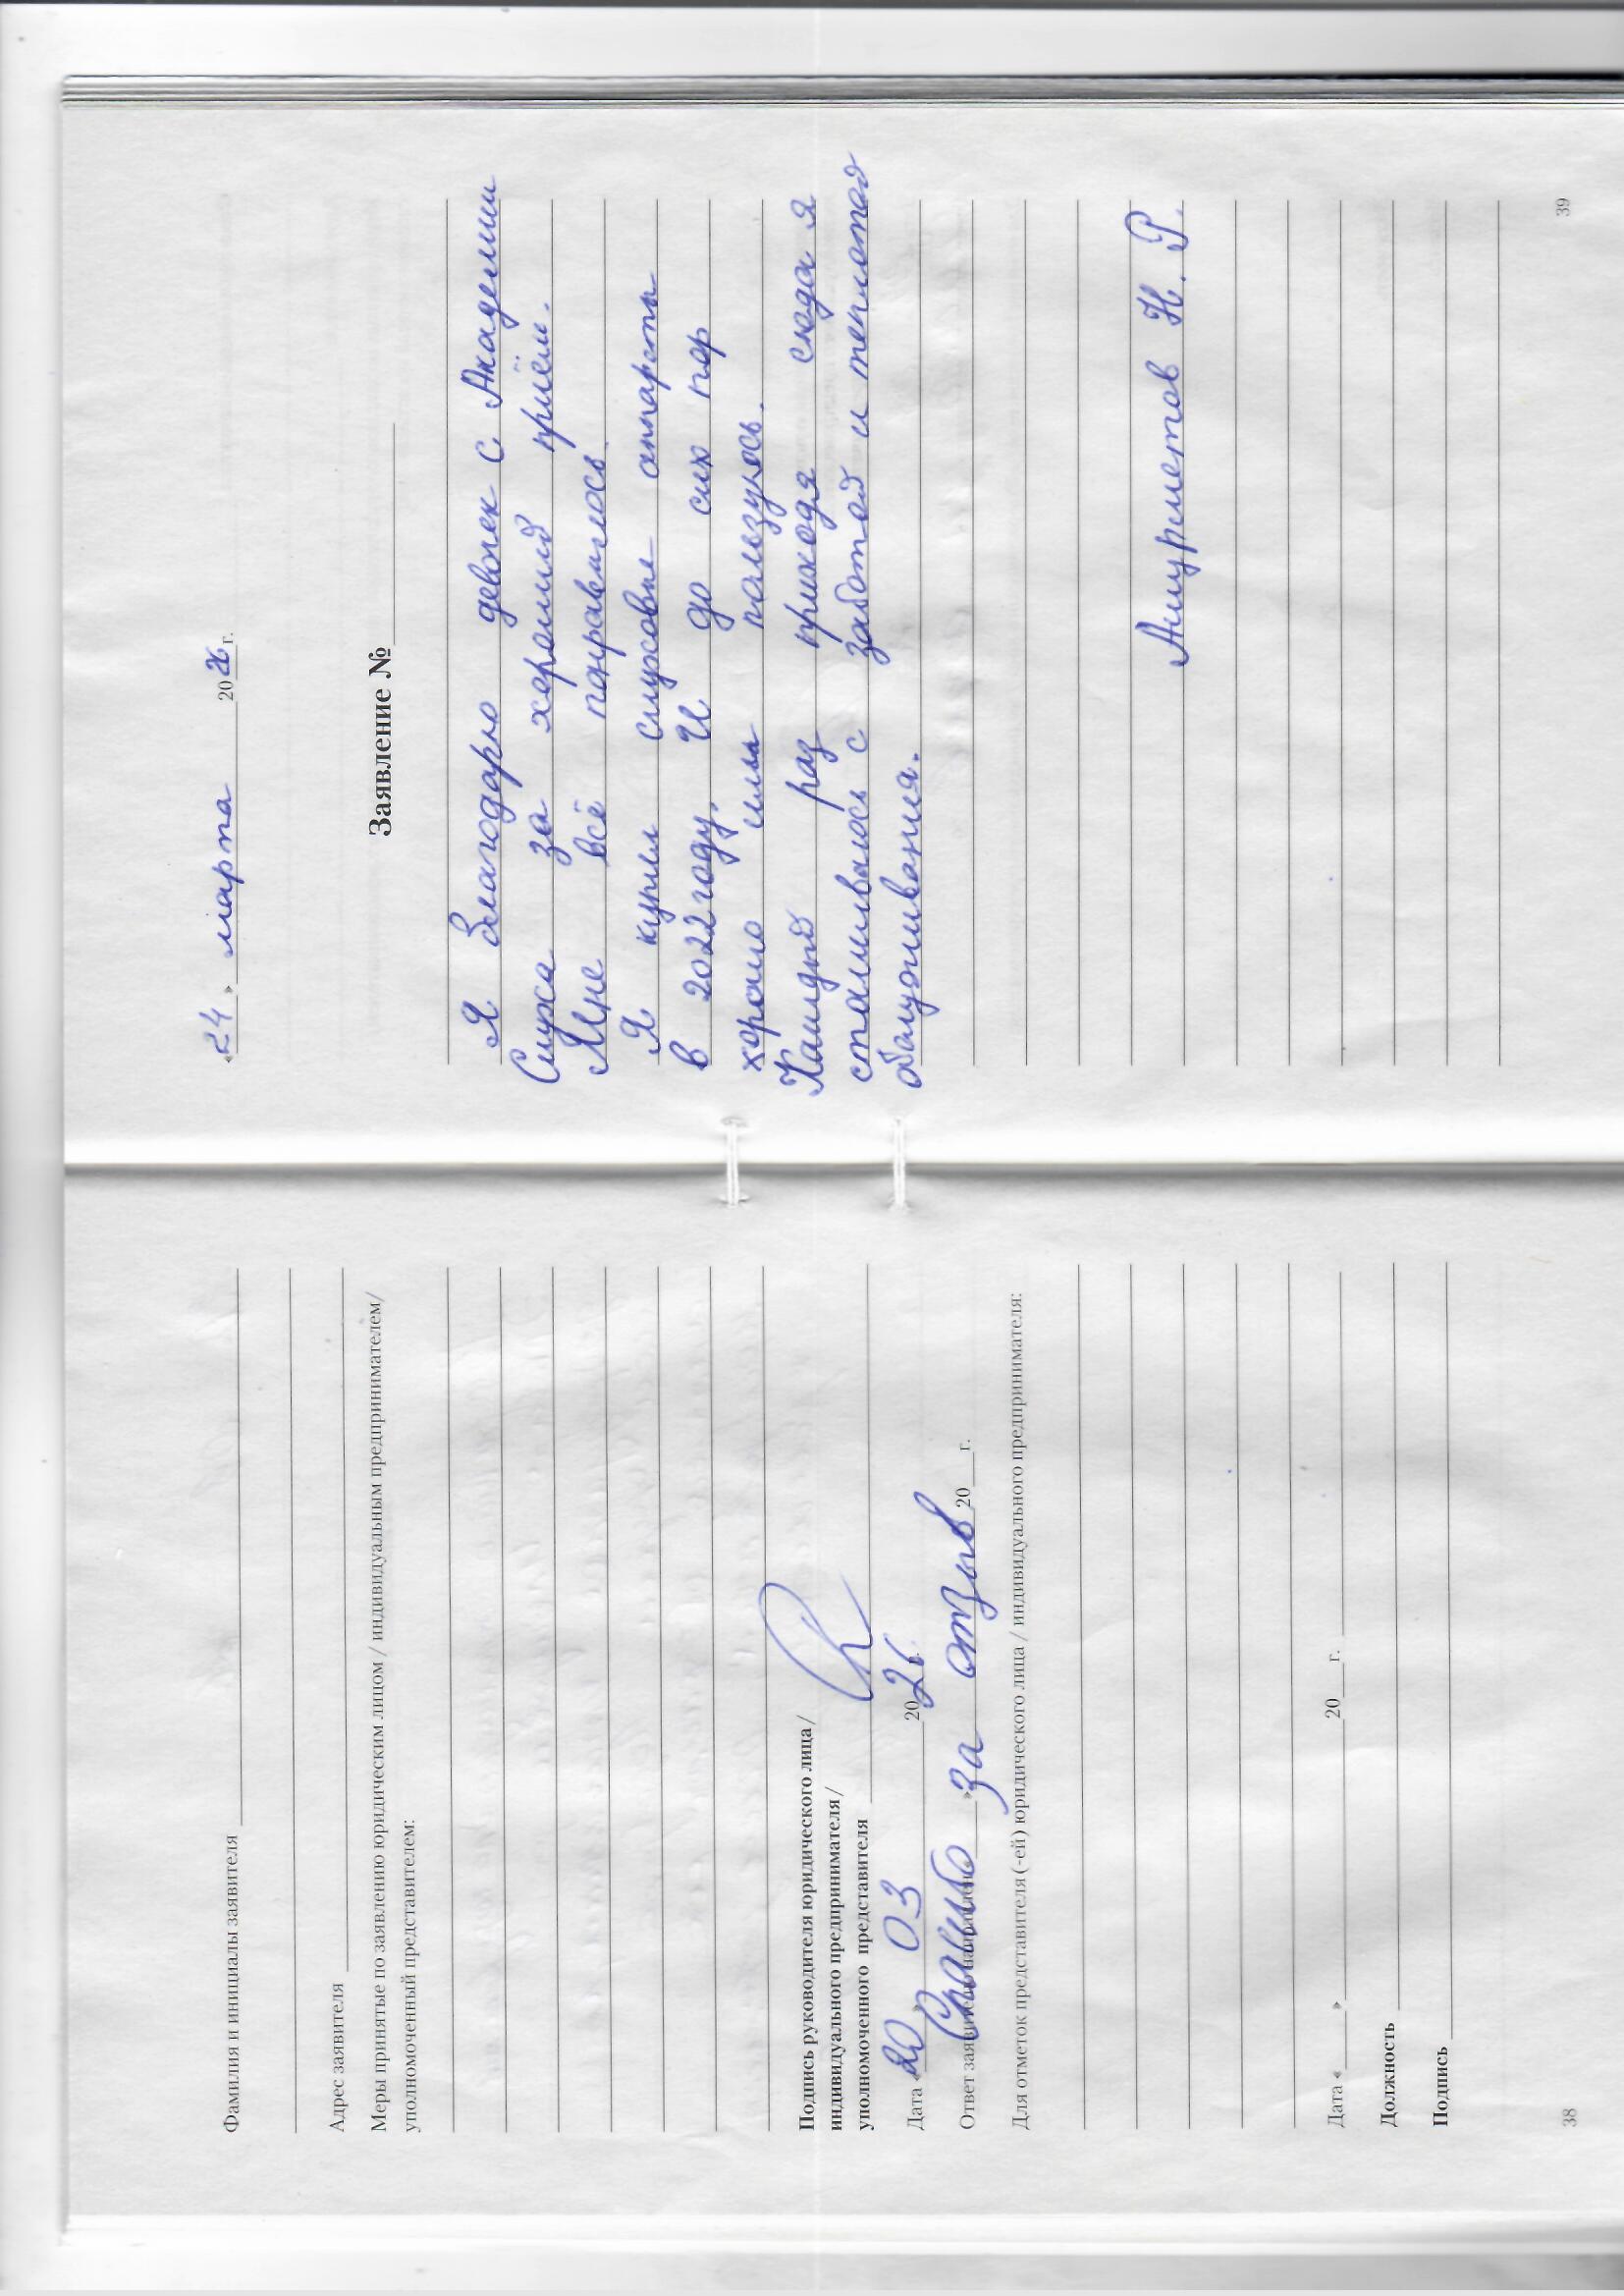 Фамилия и инициалы заявителя
Адрес заявителя
Меры принятые по заявлению юридическим лицом / индивидуальным предпринимателем/
уполномоченный представителем:
Подпись руководителя юридического лица/
индивидуального предпринимателя/
уполномоченного представителя
Дата «20» 03 2026
Ответ Спасибо » за отзыв 20 г.
Для отметок представителя (-ей) юридического лица / индивидуального предпринимателя:
Дата « » 20 г.
Должность
Подпись
38
«24» марта 2026 г.
Заявление №
Я благодарю девочек с Академии
Слуха за хороший приём.
Мне всё понравилось.
Я купил слуховые аппараты
в 2022 году. И до сих пор
хорошо ими пользуюсь.
Каждый раз приходя сюда я
сталкиваюсь с заботой и теплотой
обслуживания.
Ашурметов Н. Р.
39